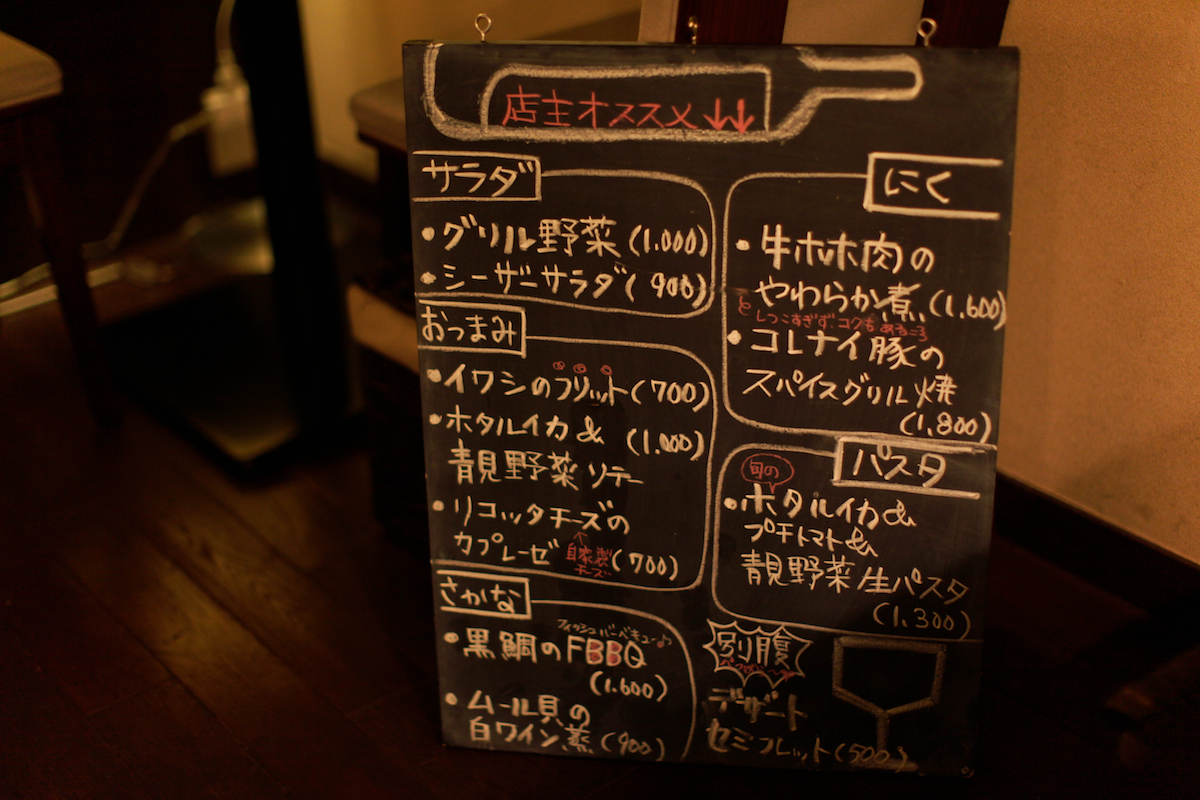 店主オススメ↓↓
サラダ
・グリル野菜(1.000)
・シーザーサラダ(900)
おつまみ
・イワシのフリット(700)
・ホタルイカ& (1.000)
青見野菜ソテー
・リコッタチーズの
カプレーゼ (700)
↑自家製
チーズ
さかな
フィッシュバーベキュー♪
・黒鯛のFBBQ
(1.600)
・ムール貝の
白ワイン蒸(900)
にく
・牛ホホ肉の
やわらか煮(1.600)
しつこすぎず、コクも
・コレナイ豚の
スパイスグリル焼
(1.800)
パスタ
旬の
・ホタルイカ&
プチトマト&
青見野菜/生パスタ
(1.300)
別腹
デザート
セミフレット(500)